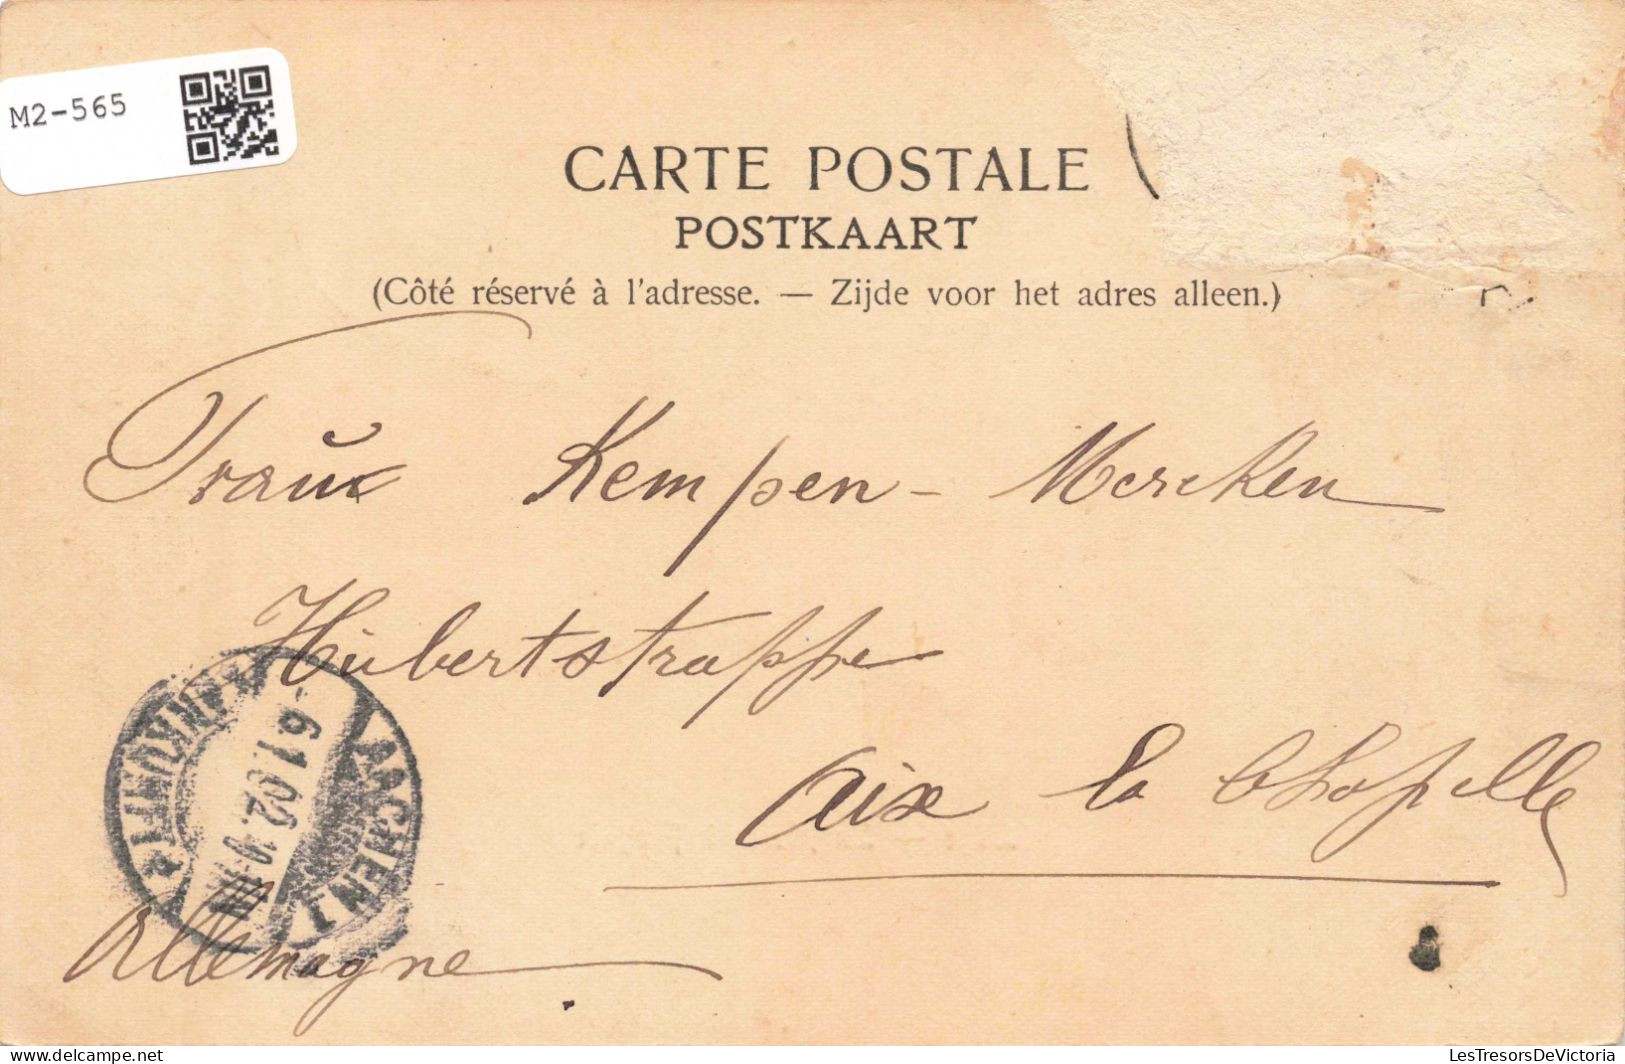 M2-565
CARTE POSTALE
POSTKAART
(Côté réservé à l'adresse. — Zijde voor het adres alleen.)
Frau Kempen - Mercken
Hubertstrasse
Aix la Chapelle
Allemagne
AACHEN 1
ANKUNFT
-6.1.02.
LesTresorsDeVictoria
delcampe.net